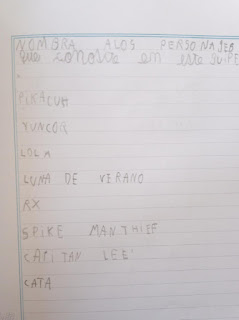 NOMBRA ALOS PERSONAJES
que conoste en este SUPE
PIKACUH
YUNCOQ
LOLA
LUNA DE VERANO
RX
SPIKE MANTHIEF
CAPITAN LEE
CATA